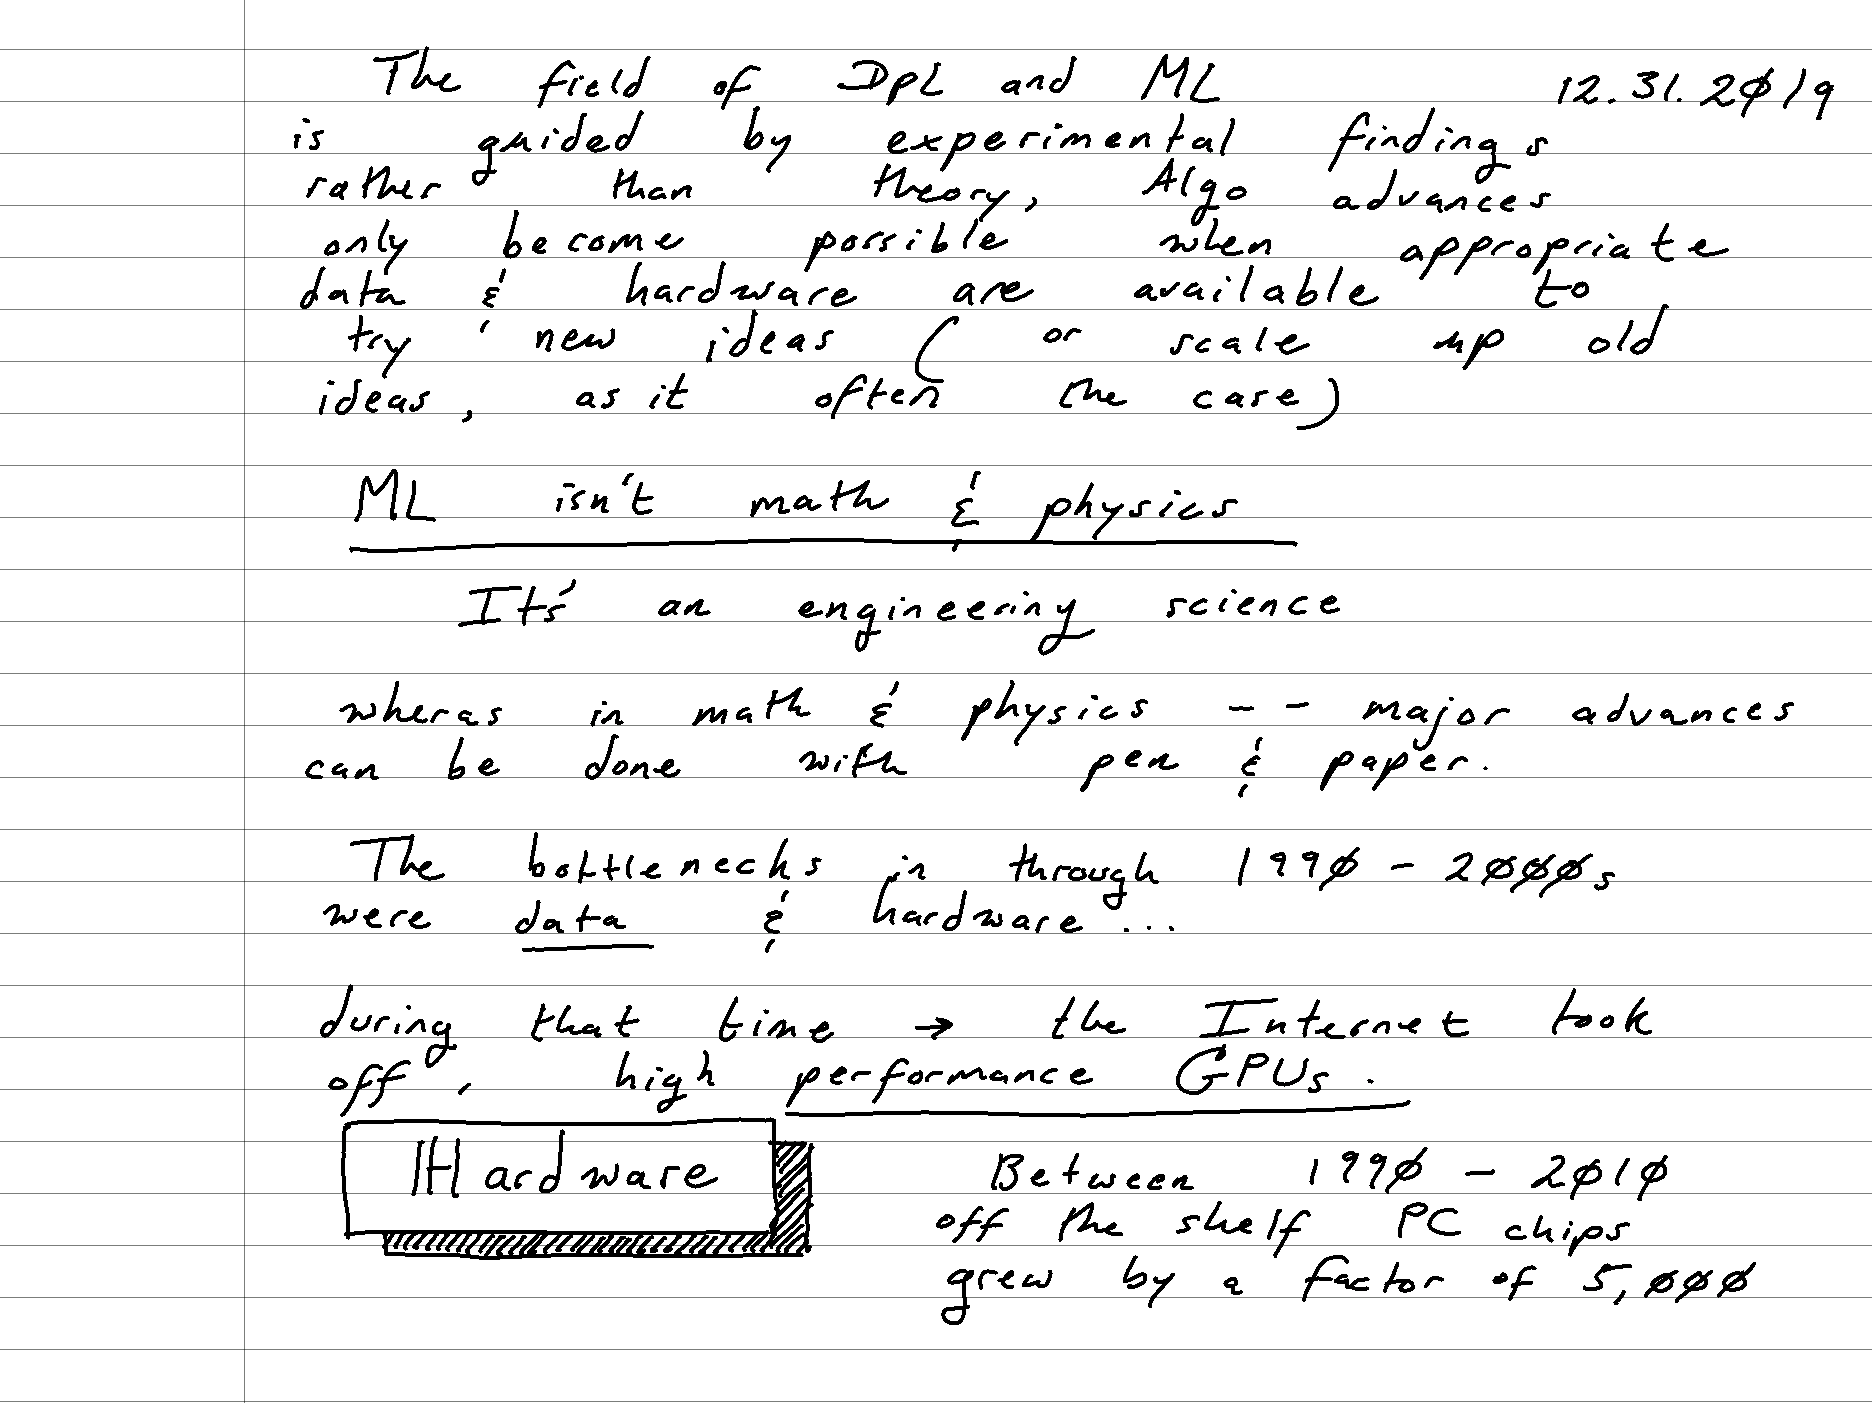 The field of DpL and ML 12.31.2019
is guided by experimental findings
rather than theory, Algo advances
only become possible when appropriate
data & hardware are available to
try new ideas ( or scale up old
ideas, as it often the case)
ML isn't math & physics
It's an engineering science
wheras in math & physics -- major advances
can be done with pen & paper.
The bottlenecks in through 1990 - 2000s
were data & hardware...
during that time → the Internet took
off, high performance GPUs.
Hardware
Between 1990 - 2010
off the shelf PC chips
grew by a factor of 5,000